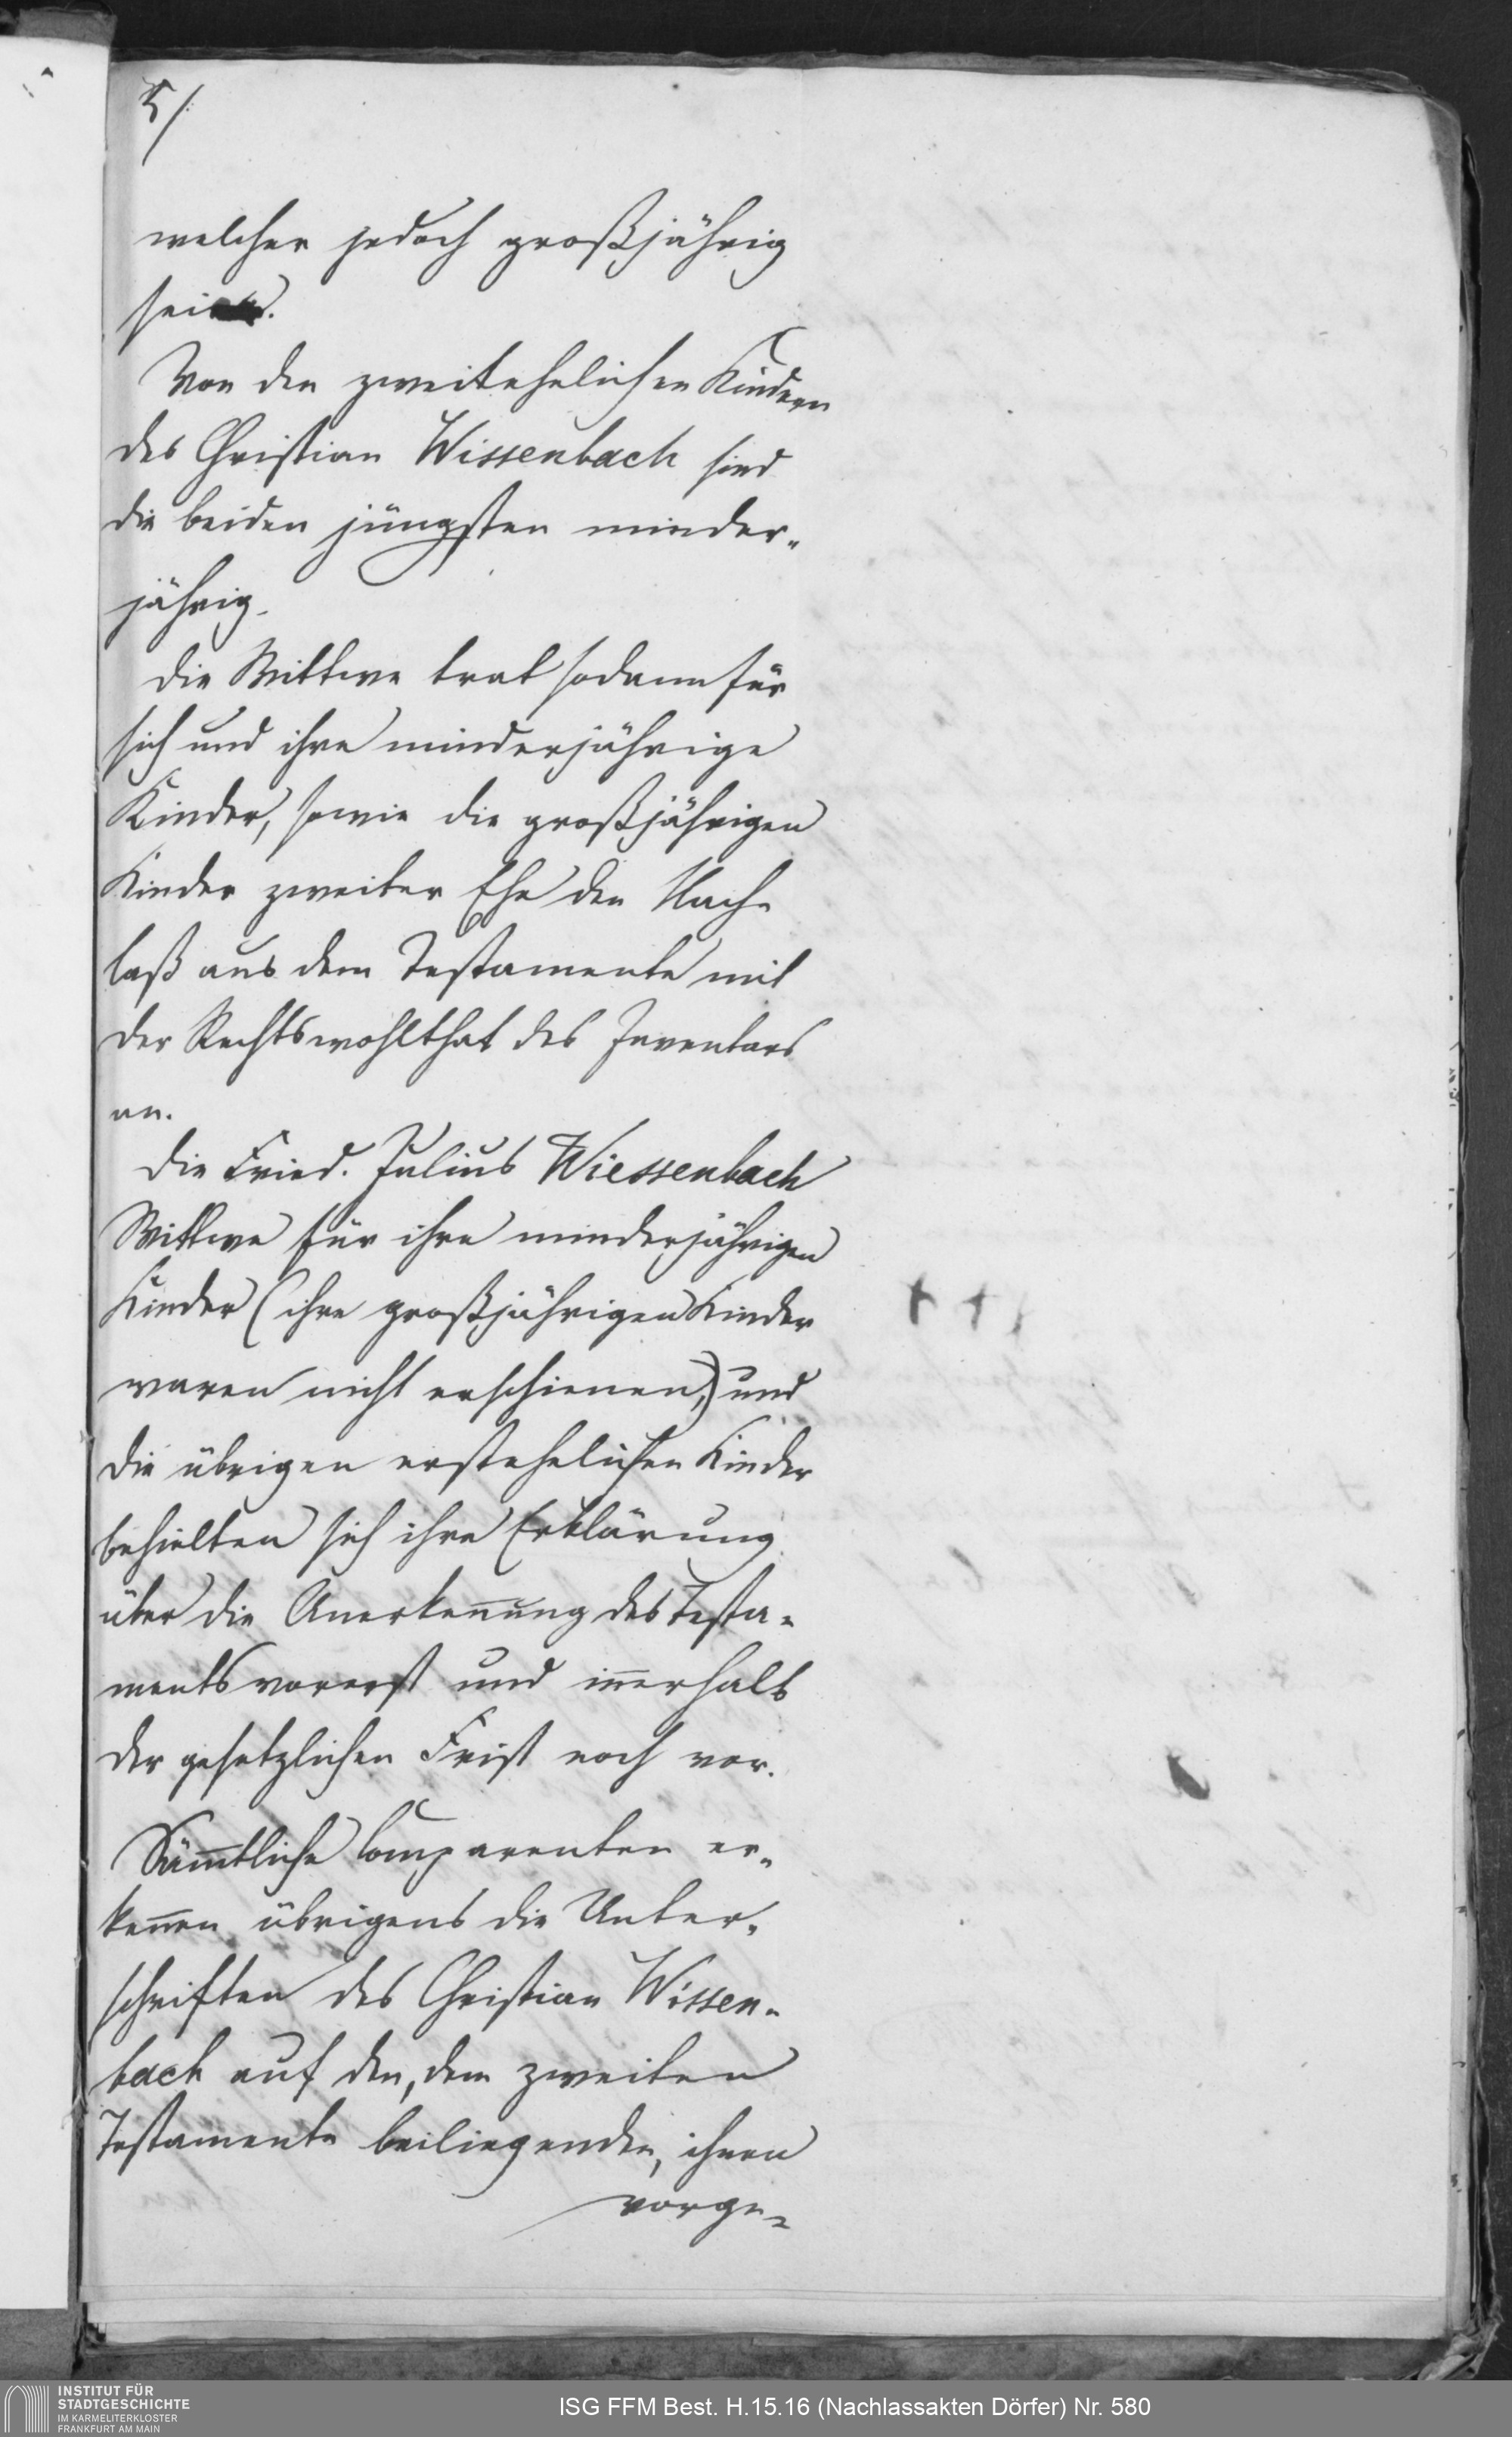 5/.
welcher jedoch großjährig
sei.
Von den zweitehelichen Kindern
des Christian Wissenbach sind
die beiden jüngsten minder-
jährig.
Die Wittwe trat sodann für
sich und ihre minderjährige
Kinder, sowie die großjährigen
Kinder zweiter Ehe den Nach-
laß aus dem Testamente mit
der Rechtswohlthat des Inventars
an.
Die Fried. Julius Wiessenbach
Wittwe für ihre minderjährigen
Kinder (ihre großjährigen Kinder
waren nicht erschienen,) und
die übrigen erstehelichen Kinder
behielten sich ihre Erklärung
über die Anerkeñung des Testa-
ments vorerst und iñerhalb
der gesetzlichen Frist noch vor.
Säm̃tliche Comparenten er-
keñen übrigens die Unter-
schriften des Christian Wissen-
bach auf den, dem zweiten
Testamente beiliegenden, ihnen
vorge-
INSTITUT FÜR
STADTGESCHICHTE
IM KARMELITERKLOSTER
FRANKFURT AM MAIN
ISG FFM Best. H.15.16 (Nachlassakten Dörfer) Nr. 580